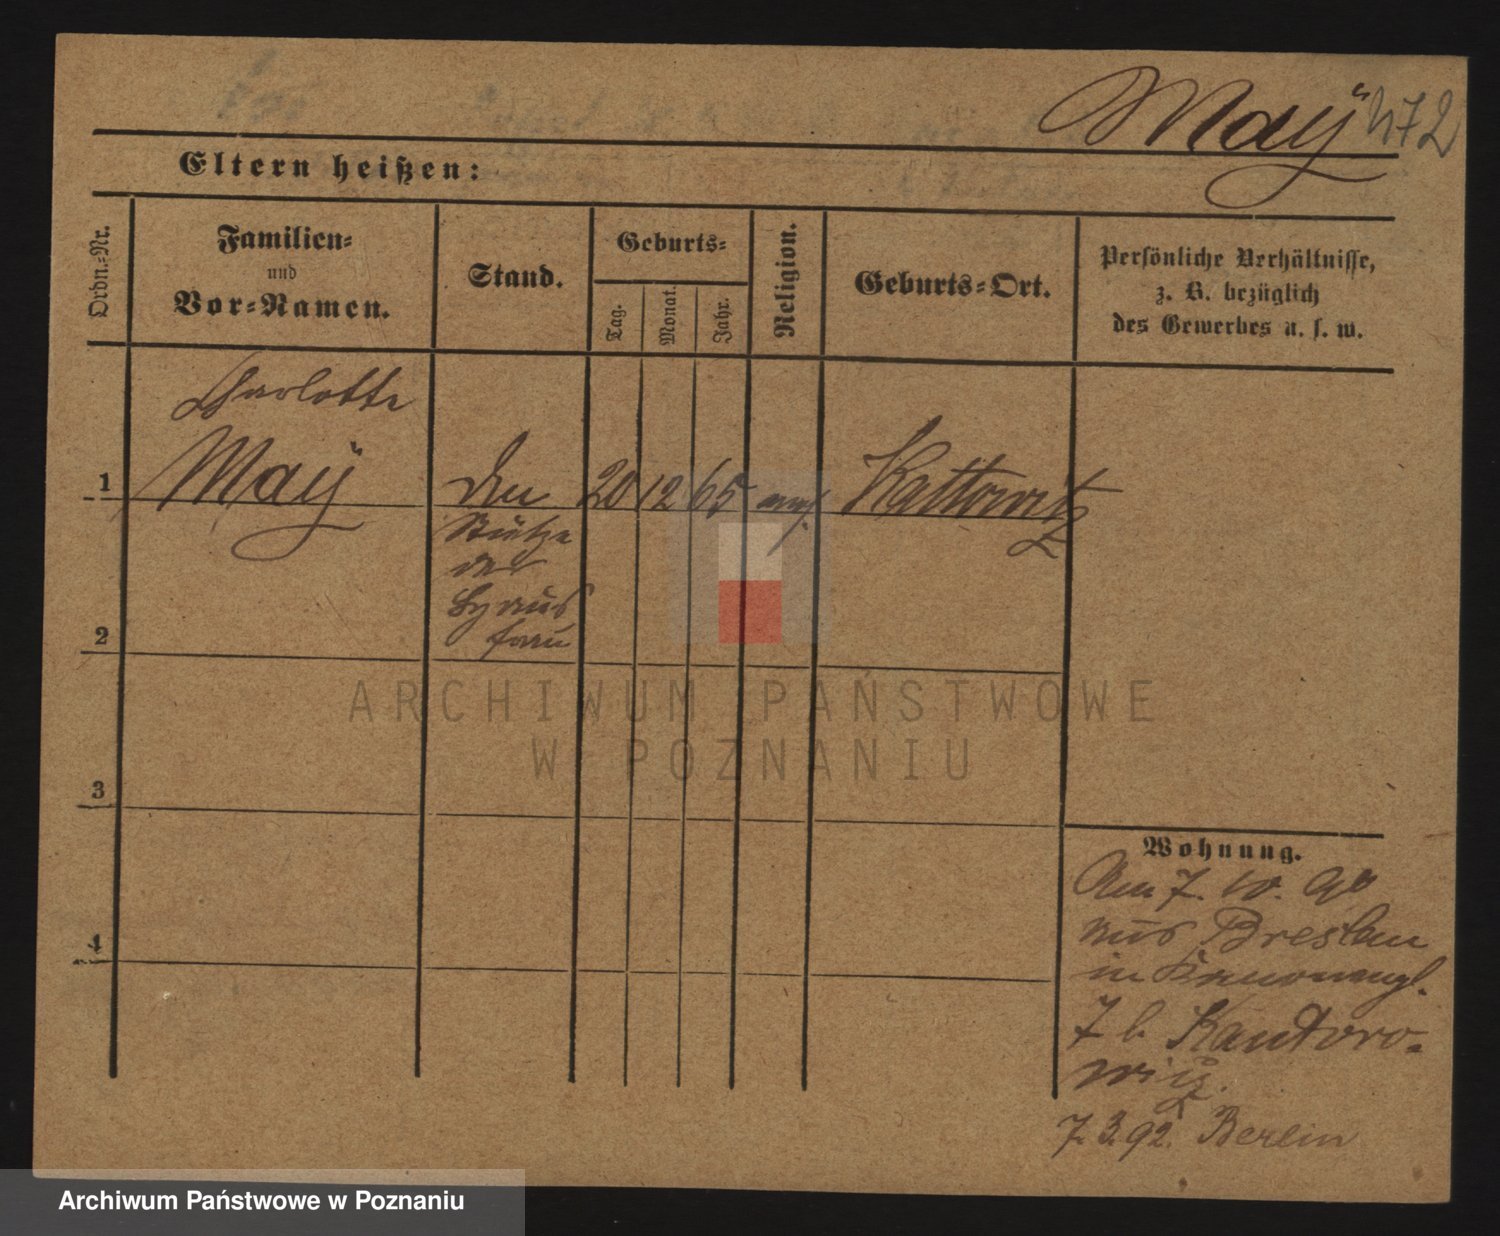 Maÿ 472
Eltern heißen:
Ordn.-Nr.
Familien-
und
Vor-Namen.
Stand.
Geburts-
Tag.
Monat.
Jahr.
Religion.
Geburts-Ort.
Persönliche Verhältnisse,
z. B. bezüglich
des Gewerbes u. s. w.
Charlotte
1 Maÿ 20 12 65 Kattowitz
Stütze
der
Haus
frau
2
3
4
Wohnung.
Am 7. 10. 90
aus Breslau
in
7 b. Kantoro-
witz.
7. 3. 92. Berlin
ARCHIWUM PAŃSTWOWE
W POZNANIU
Archiwum Państwowe w Poznaniu